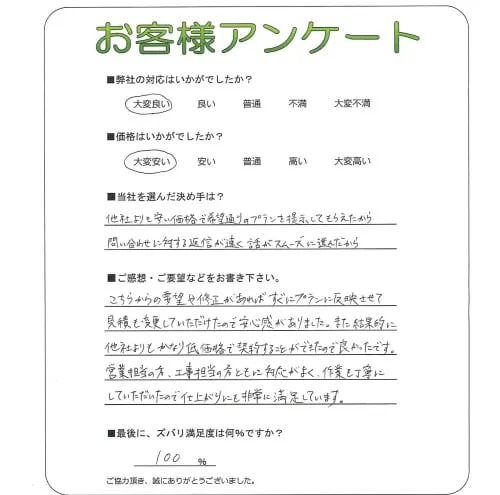 お客様アンケート
■弊社の対応はいかがでしたか？
大変良い 良い 普通 不満 大変不満
■価格はいかがでしたか？
大変安い 安い 普通 高い 大変高い
■当社を選んだ決め手は？
他社よりも安い価格で希望通りのプランを提示してもらえたから
問い合わせに対する返信が速く話がスムーズに進んだから
■ご感想・ご要望などをお書き下さい。
こちらからの要望や修正があればすぐにプランに反映させて
見積も変更していただけたので安心感がありました。また結果的に
他社よりもかなり低価格で契約することができたので良かったです。
営業担当の方、工事担当の方ともに対応がよく、作業も丁寧に
していただいたので仕上がりにも非常に満足しています。
■最後に、ズバリ満足度は何%ですか？
100 %
ご協力頂き、誠にありがとうございました。